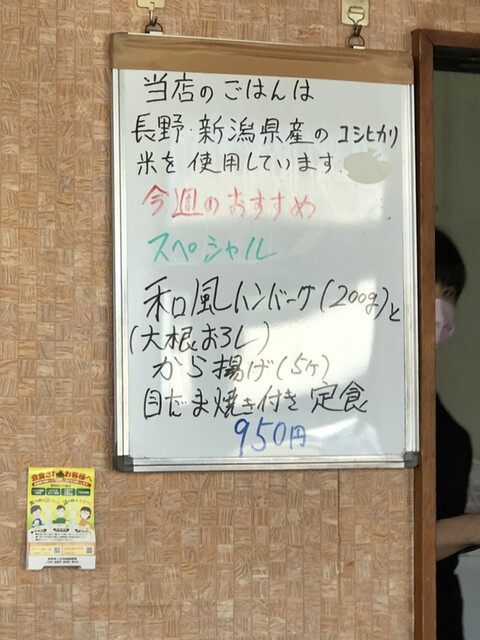 当店のごはんは
長野・新潟県産のコシヒカリ
米を使用しています.
今週のおすすめ
スペシャル
和風ハンバーグ(200g)と
(大根おろし)
から揚げ(5ケ)
目だま焼き付き定食
950円
会食される お客様へ